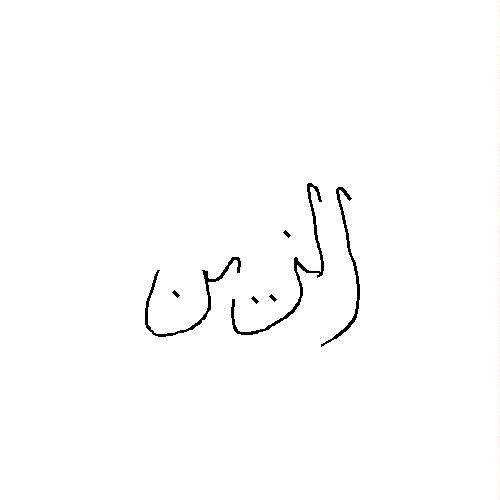 الزين